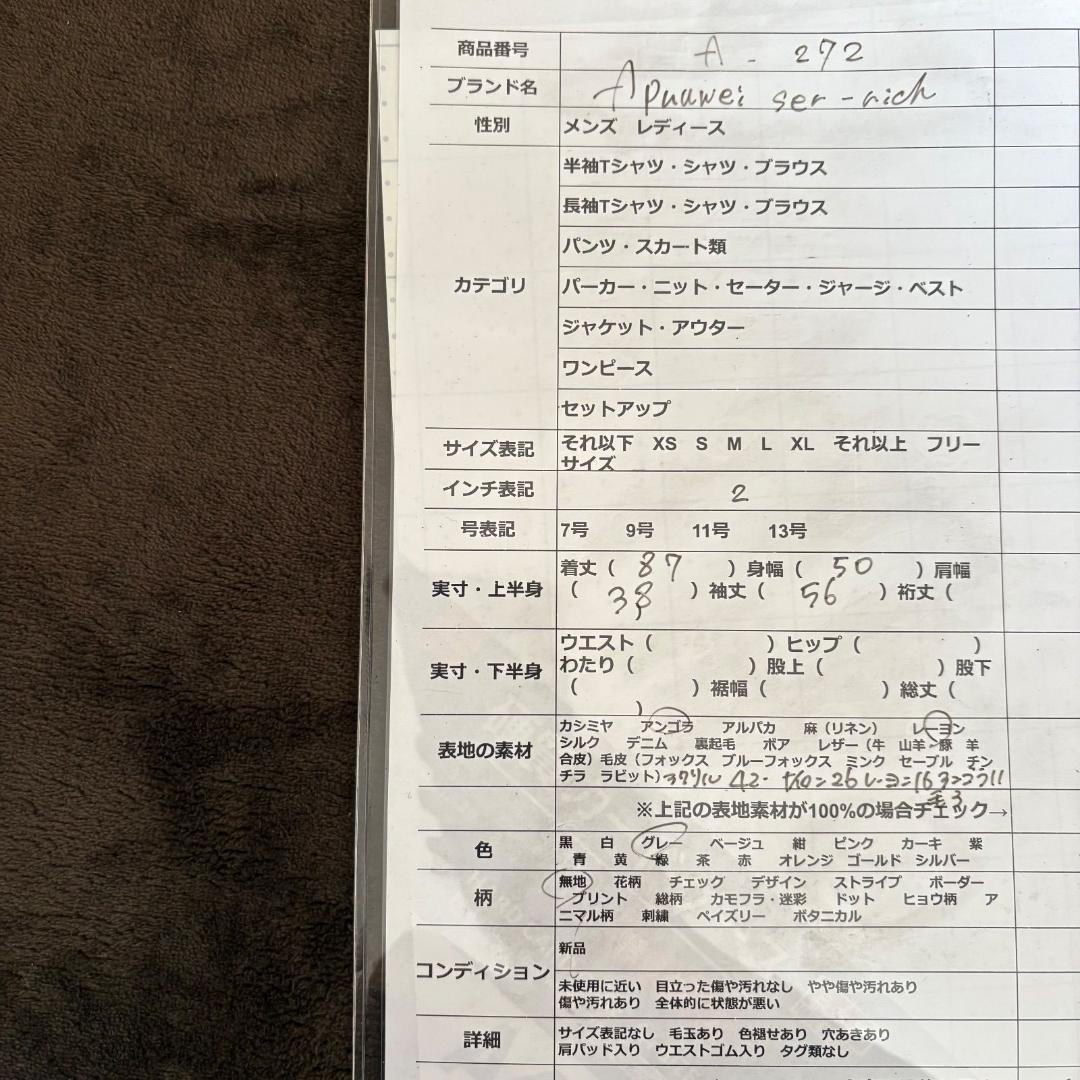 商品番号 A - 272
ブランド名 Apuuwei ser-rich
性別 メンズ レディース
カテゴリ
半袖Tシャツ・シャツ・ブラウス
長袖Tシャツ・シャツ・ブラウス
パンツ・スカート類
パーカー・ニット・セーター・ジャージ・ベスト
ジャケット・アウター
ワンピース
セットアップ
サイズ表記 それ以下 XS S M L XL それ以上 フリー
サイズ
インチ表記 2
号表記 7号 9号 11号 13号
実寸・上半身 着丈( 87 )身幅( 50 )肩幅
( 38 )袖丈( 56 )裄丈(
実寸・下半身 ウエスト( )ヒップ( )
わたり( )股上( )股下
( )裾幅( )総丈(
)
表地の素材 カシミヤ アンゴラ アルパカ 麻(リネン) レーヨン
シルク デニム 裏起毛 ボア レザー(牛 山羊 豚 羊
合皮)毛皮(フォックス ブルーフォックス ミンク セーブル チン
チラ ラビット) 42 ナイロン26 レーヨン16 アンゴラ11
毛3
※上記の表地素材が100%の場合チェック→
色 黒 白 グレー ベージュ 紺 ピンク カーキ 紫
青 黄 緑 茶 赤 オレンジ ゴールド シルバー
柄 無地 花柄 チェック デザイン ストライプ ボーダー
プリント 総柄 カモフラ・迷彩 ドット ヒョウ柄 ア
ニマル柄 刺繍 ペイズリー ボタニカル
コンディション 新品
未使用に近い 目立った傷や汚れなし やや傷や汚れあり
傷や汚れあり 全体的に状態が悪い
詳細 サイズ表記なし 毛玉あり 色褪せあり 穴あきあり
肩パッド入り ウエストゴム入り タグ類なし